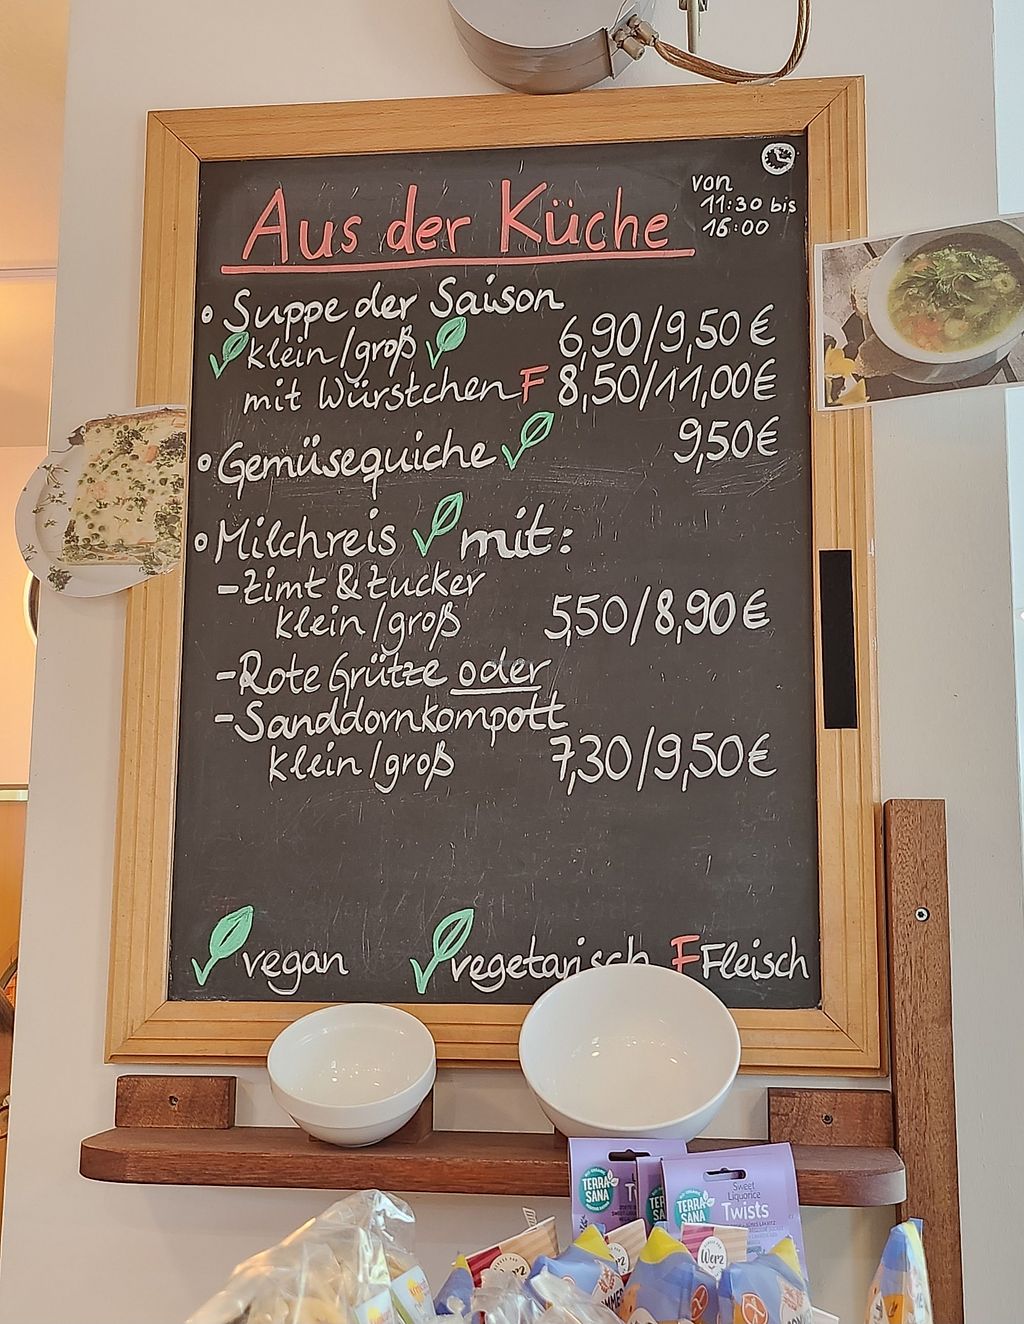 Aus der Küche
von
11:30 bis
16:00
Suppe der Saison
klein/groß 6,90/9,50 €
mit Würstchen F 8,50/11,00€
Gemüsequiche 9,50€
Milchreis mit:
-Zimt & Zucker
klein/groß 5,50/8,90€
-Rote Grütze oder
-Sanddornkompott
klein/groß 7,30/9,50€
vegan vegetarisch F Fleisch
TERRA
SANA
TERRA
SANA
Sweet
Liquorice
Twists
Werz
Werz